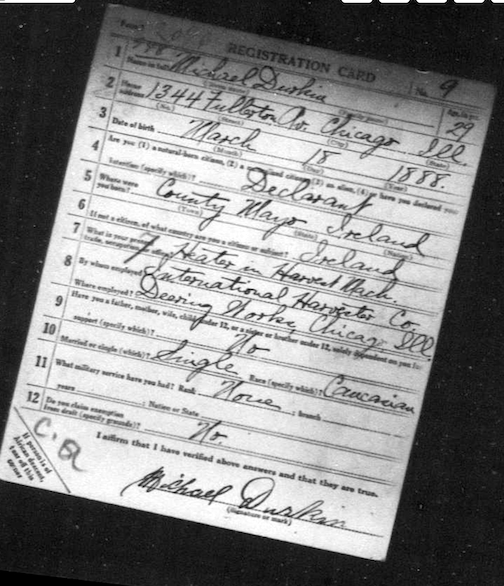 Form 1
REGISTRATION CARD No. 9
1 Name in full Michael Durkin Age, in yrs. 29
2 Home address 1344 Fullerton Av. Chicago Ill.
(No.) (Street) (City) (State)
3 Date of birth March 18 1888.
(Month) (Day) (Year)
4 Are you (1) a natural-born citizen, (2) a naturalized citizen, (3) an alien, (4) or have you declared your
intention (specify which)? Declarant
5 Where were you born? County Mayo Ireland
(Town) (State) (Nation)
6 If not a citizen, of what country are you a citizen or subject? Ireland
7 What is your present trade, occupation, or office? Heater in Harvest Mach.
8 By whom employed? International Harvester Co.
Where employed? Deering Works Chicago Ill.
9 Have you a father, mother, wife, child under 12, or a sister or brother under 12, solely dependent on you for
support (specify which)? No
10 Married or single (which)? Single Race (specify which)? Caucasian
11 What military service have you had? Rank None ; branch
years ; Nation or State
12 Do you claim exemption from draft (specify grounds)? No
I affirm that I have verified above answers and that they are true.
Michael Durkin
(Signature or mark)
If person is of
African descent,
tear off this
corner